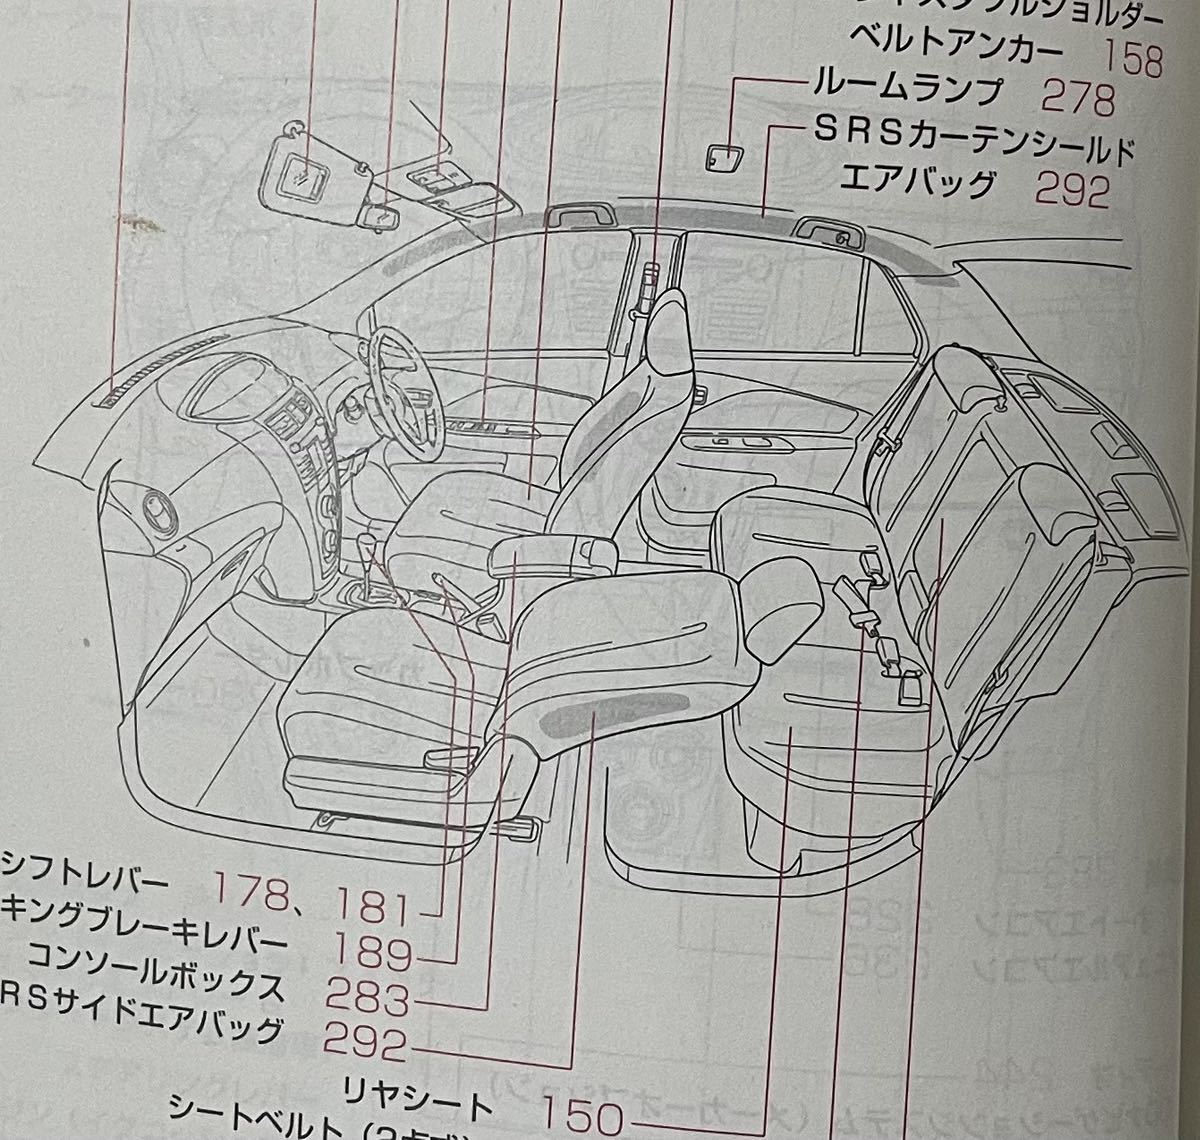 ベルトアンカー 158
ルームランプ 278
SRSカーテンシールド
エアバッグ 292
シフトレバー 178、181
キングブレーキレバー 189
コンソールボックス 283
RSサイドエアバッグ 292
リヤシート 150
シートベルト